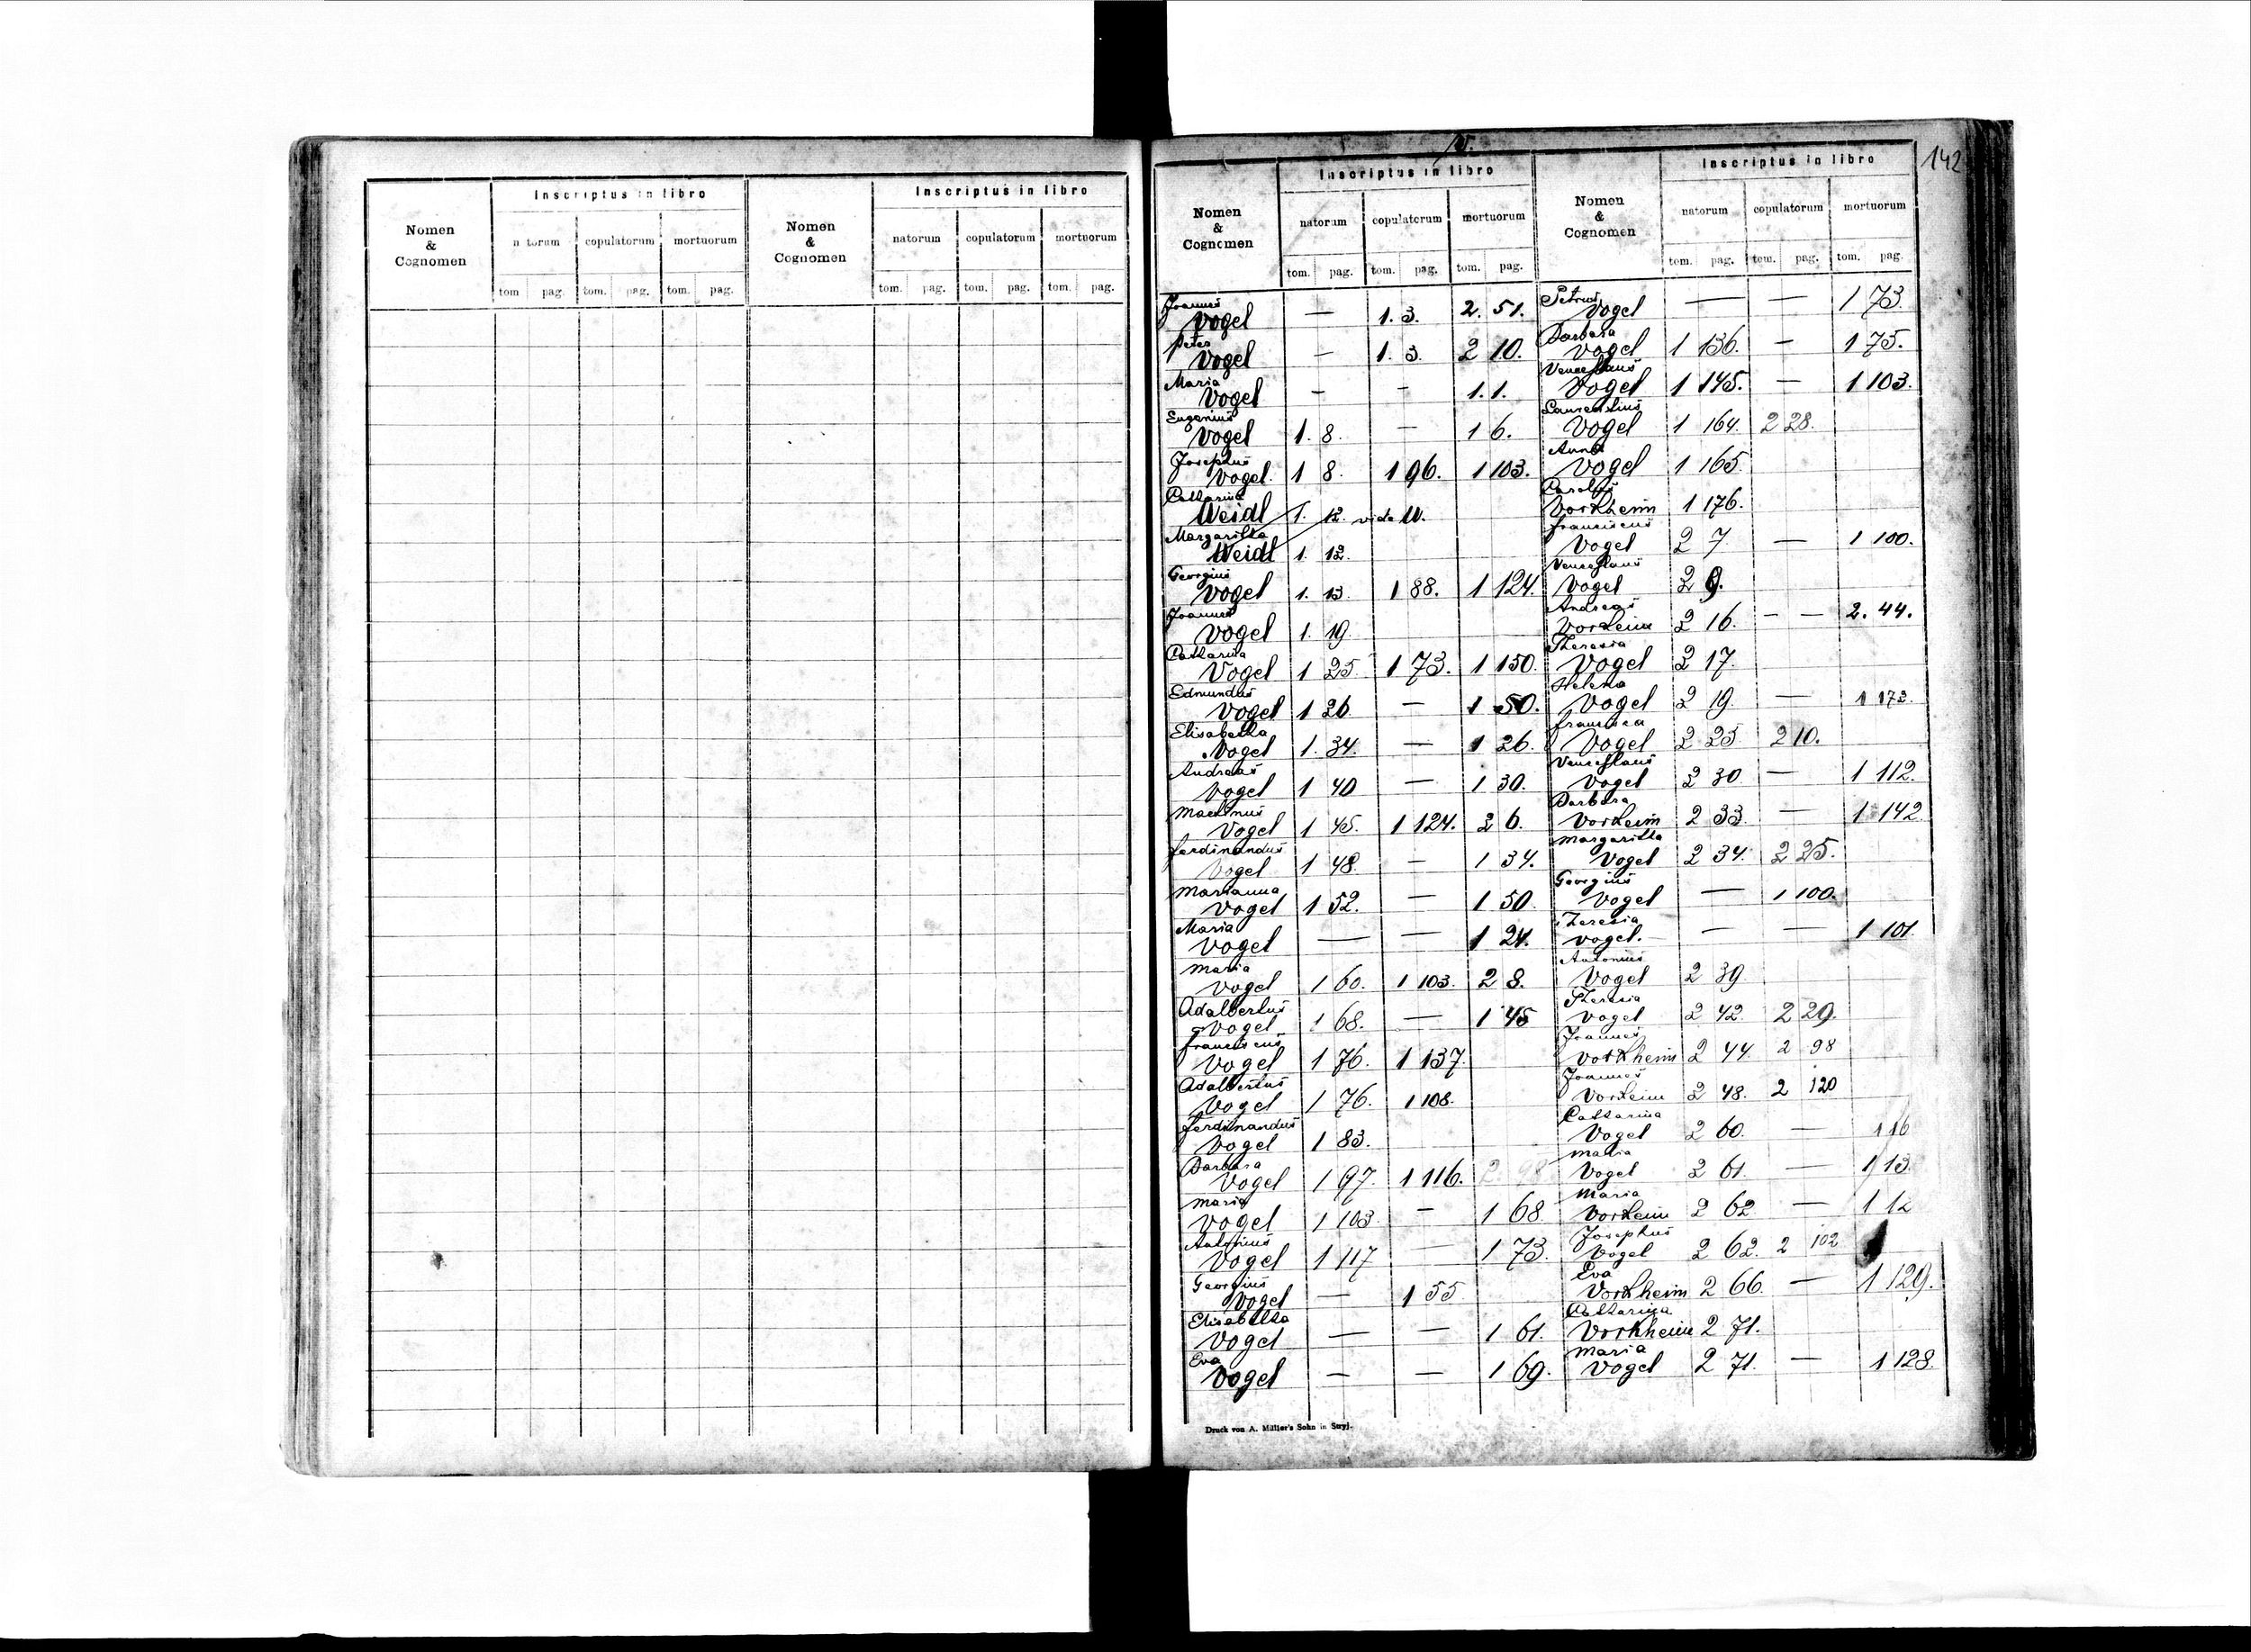 142
Nomen & Cognomen
Inscriptus in libro
natorum copulatorum mortuorum
tom. pag. tom. pag. tom. pag.
Nomen & Cognomen
Inscriptus in libro
natorum copulatorum mortuorum
tom. pag. tom. pag. tom. pag.
Nomen & Cognomen
Inscriptus in libro
natorum copulatorum mortuorum
tom. pag. tom. pag. tom. pag.
Joannes Vogel — 1. 3. 2. 51.
Peter Vogel — 1. 3. 2 10.
Maria Vogel — — 1. 1.
Eugenius Vogel 1. 8. — 1 6.
Josephus Vogel. 1 8. 1 96. 1 103.
Catharina Weidl 1. 12. vide W.
Margaritta Weidl 1. 12.
Georgius Vogel 1. 13. 1 88. 1 124.
Joannes Vogel 1. 19.
Catharina Vogel 1 25. 1 73. 1 150.
Edmundus Vogel 1 26 — 1 50.
Elisabetha Vogel 1. 34. — 1 26.
Andreas Vogel 1 40 — 1 30.
Martinus Vogel 1 45. 1 124. 2 6.
Ferdinandus Vogel 1 48. — 1 34.
Marianna Vogel 1 52. — 1 50.
Maria Vogel — — 1 24.
Maria Vogel 1 60. 1 103. 2 8.
Adalbertus Vogel 1 68. — 1 45
Franciscus Vogel 1 76. 1 137.
Adalbertus Vogel 1 76. 1 108.
Ferdinandus Vogel 1 83.
Barbara Vogel 1 97. 1 116. 2. 98
Maria Vogel 1 103 — 1 68.
Antonius Vogel 1 117 — 1 73.
Georgius Vogel — 1 55.
Elisabetha Vogel — — 1 61.
Eva Vogel — — 1 69.
Nomen & Cognomen
Inscriptus in libro
natorum copulatorum mortuorum
tom. pag. tom. pag. tom. pag.
Petrus Vogel — — 1 73.
Barbara Vogel 1 136. — 1 75.
Venceslaus Vogel 1 145. — 1 103.
Laurentius Vogel 1 164. 2 28.
Anna Vogel 1 165.
Carolus Vorkheim 1 176.
Franciscus Vogel 2 7 — 1 100.
Venceslaus Vogel 2 9.
Andreas Vorkeim 2 16. — — 2. 44.
Theresia Vogel 2 17.
Helena Vogel 2 19. — 1 173.
Francisca Vogel 2 25 2 10.
Venceslaus Vogel 2 30 — 1 112.
Barbara Vorkeim 2 33. — 1 142
Margaritta Vogel 2 34. 2 25.
Georgius Vogel — 1 100.
Theresia Vogel. — — 1 101
Antonius Vogel 2 39
Theresia Vogel 2 42. 2 29.
Joannes Vorkheim 2 44. 2 98
Joannes Vorkeim 2 48. 2 120
Catharina Vogel 2 60. — 1 16
Maria Vogel 2 61. — 1 13.
Maria Vorkeim 2 62 — 1 12
Josephus Vogel 2 62. 2 102
Eva Vorkheim 2 66. — 1 129.
Catharina Vorkheim 2 71.
Maria Vogel 2 71. — 1 128.
Druck von A. Müller's Sohn in Stryj.